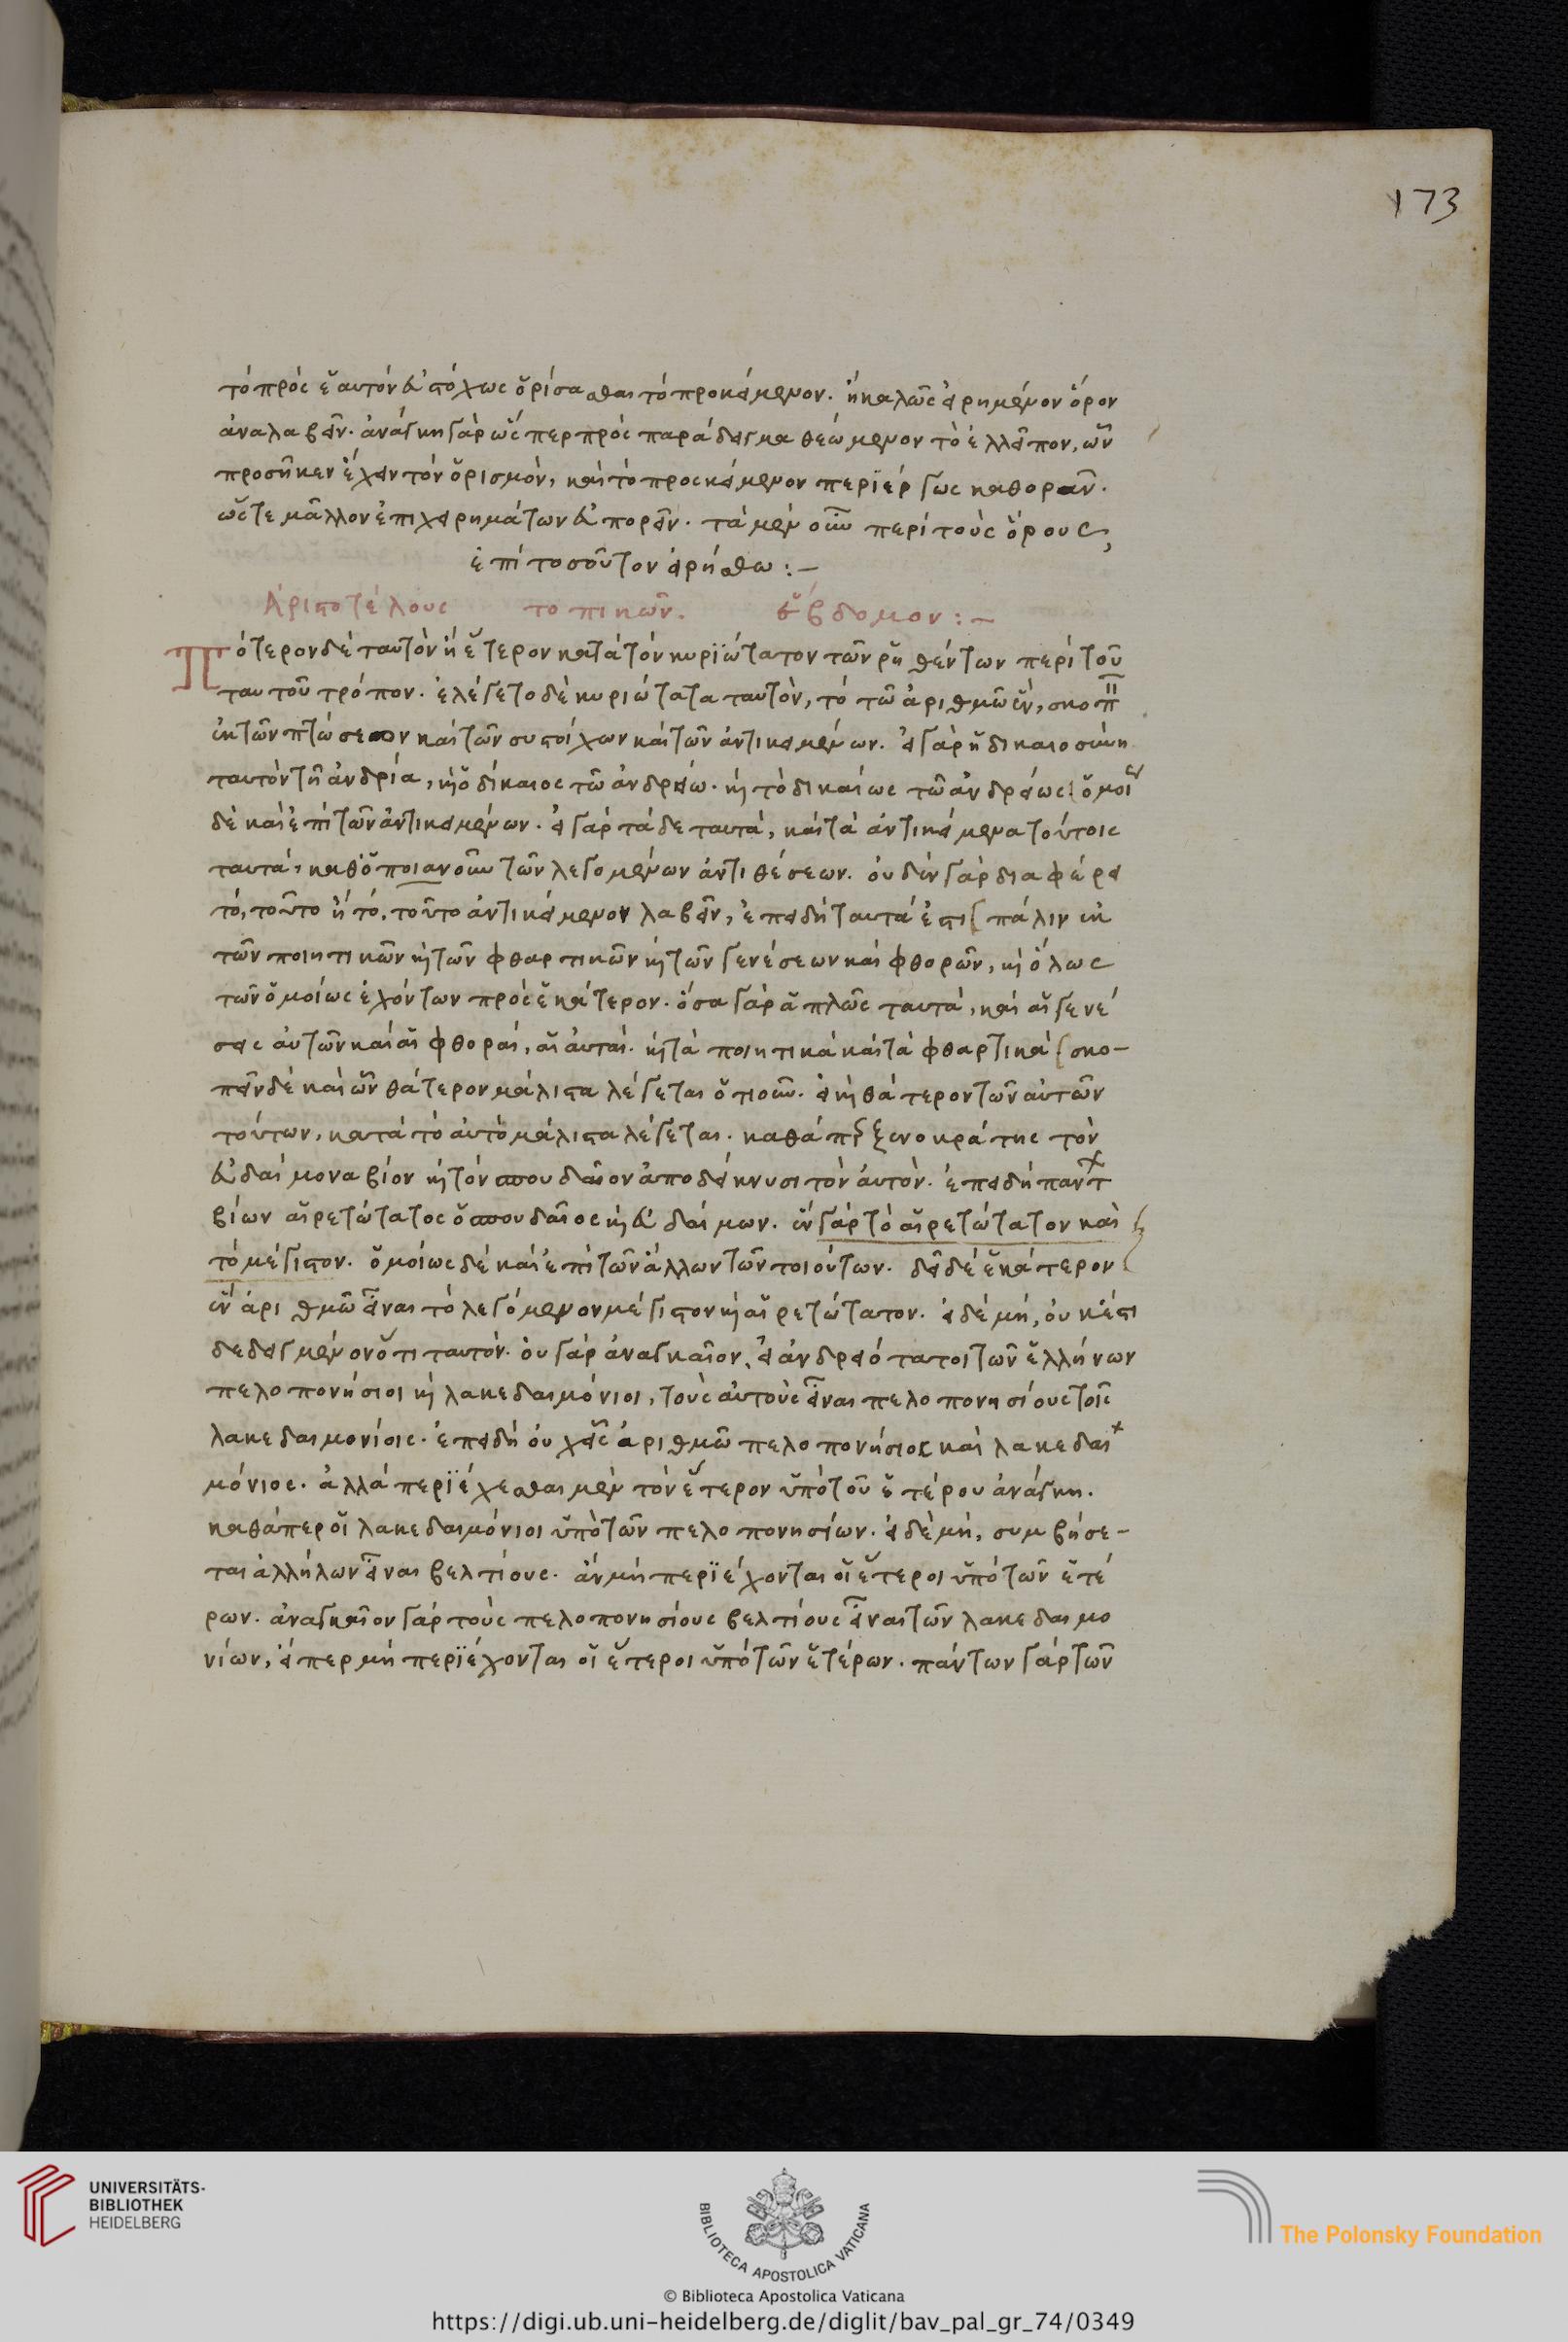 173
τὸ πρὸς ἑαυτὸν εὐστόχως ὁρίσασθαι τὸ προκείμενον. ἢ καλῶς εἰρημένον ὅρον
ἀναλαβεῖν. ἀνάγκη γὰρ ὥσπερ πρὸς παράδειγμα θεώμενον τὸ ἐλλεῖπον, ὧν
προσῆκεν ἔχειν τὸν ὁρισμὸν, καὶ τὸ προσκείμενον περϊέργως καθορᾶν.
ὥςτε μᾶλλον ἐπιχειρημάτων εὐπορεῖν. τὰ μὲν οὖν περὶ τοὺς ὅρους,
ἐπὶ τοσοῦτον εἰρήσθω :–
Ἀριστοτέλους τοπικῶν. ἕβδομον :–
Πότερον δὲ ταυτὸν ἢ ἕτερον κατὰ τὸν κυρϊώτατον τῶν ῥηθέντων περὶ τοῦ
ταυτοῦ τρόπον. ἐλέγετο δὲ κυριώτατα ταυτὸν, τὸ τῶ ἀριθμῶ ἓν, σκοπ
ἐκ τῶν πτώσεων καὶ τῶν συστοίχων καὶ τῶν ἀντικειμένων. εἰ γὰρ ἡ δικαιοσύνη
ταυτὸν τῆ ἀνδρία, κ ὁ δίκαιος τῶ ἀνδρείω. κ τὸ δικαίως τῶ ἀνδρείως ὁμοί
δὲ καὶ ἐπὶ τῶν ἀντικειμένων. εἰ γὰρ τάδε ταυτά, καὶ τὰ ἀντικείμενα τούτοις
ταυτά, καθ᾽ ὁποιανοῦν τῶν λεγομένων ἀντιθέσεων. οὐδὲν γὰρ διαφέρει
τό, τοῦτο ἢ τό, τοῦτο ἀντικείμενον λαβεῖν, ἐπειδὴ ταυτά ἐστι πάλιν ἐκ
τῶν ποιητικῶν κ τῶν φθαρτικῶν κ τῶν γενέσεων καὶ φθορῶν, κ ὅλως
τῶν ὁμοίως ἐχόντων πρὸς ἑκάτερον. ὅσα γὰρ ἁπλῶς ταυτά, καὶ αἱ γενέ
σεις αὐτῶν καὶ αἱ φθοραί, αἱ αὐταί. κ τὰ ποιητικὰ καὶ τὰ φθαρτικά σκο–
πεῖν δὲ καὶ ὧν θάτερον μάλιστα λέγεται ὁτιοῦν. εἰ κ θάτερον τῶν αὐτῶν
τούτων, κατὰ τὸ αὐτὸ μάλιστα λέγεται. καθάπερ ξενοκράτης τὸν
εὐδαίμονα βίον κ τὸν σπουδαῖον ἀποδείκνυσι τὸν αὐτόν. ἐπειδὴ παντ
βίων αἱρετώτατος ὁ σπουδαῖος κ εὐδαίμων. ἓν γὰρ τὸ αἱρετώτατον καὶ
τὸ μέγιστον. ὁμοίως δὲ καὶ ἐπὶ τῶν ἄλλων τῶν τοιούτων. δεῖ δὲ ἑκάτερον
ἓν ἀριθμῶ εἶναι τὸ λεγόμενον μέγιστον κ αἱρετώτατον. εἰ δὲ μή, οὐκ ἔσται
δεδειγμένον ὅτι ταυτόν. οὐ γὰρ ἀναγκαῖον, εἰ ἀνδρειότατοι τῶν ἑλλήνων
πελοπονήσιοι κ λακεδαιμόνιοι, τοὺς αὐτοὺς εἶναι πελοπονησίους τοῖς
λακεδαιμονίοις. ἐπειδὴ οὐχ εἷς ἀριθμῶ πελοπονήσιος καὶ λακεδαι
μόνιος. ἀλλὰ περϊέχεσθαι μὲν τὸν ἕτερον ὑπὸ τοῦ ἑτέρου ἀνάγκη.
καθάπερ οἱ λακεδαιμόνιοι ὑπὸ τῶν πελοπονησίων. εἰ δὲ μή, συμβήσε–
ται ἀλλήλων εἶναι βελτίους. ἂν μὴ περϊέχονται οἱ ἕτεροι ὑπὸ τῶν ἑτέ
ρων. ἀναγκαῖον γὰρ τοὺς πελοπονησίους βελτίους εἶναι τῶν λακεδαιμο
νίων, εἴπερ μὴ περϊέχονται οἱ ἕτεροι ὑπὸ τῶν ἑτέρων. πάντων γὰρ τῶν
UNIVERSITÄTS-
BIBLIOTHEK
HEIDELBERG
BIBLIOTECA APOSTOLICA VATICANA
The Polonsky Foundation
© Biblioteca Apostolica Vaticana
https://digi.ub.uni-heidelberg.de/diglit/bav_pal_gr_74/0349